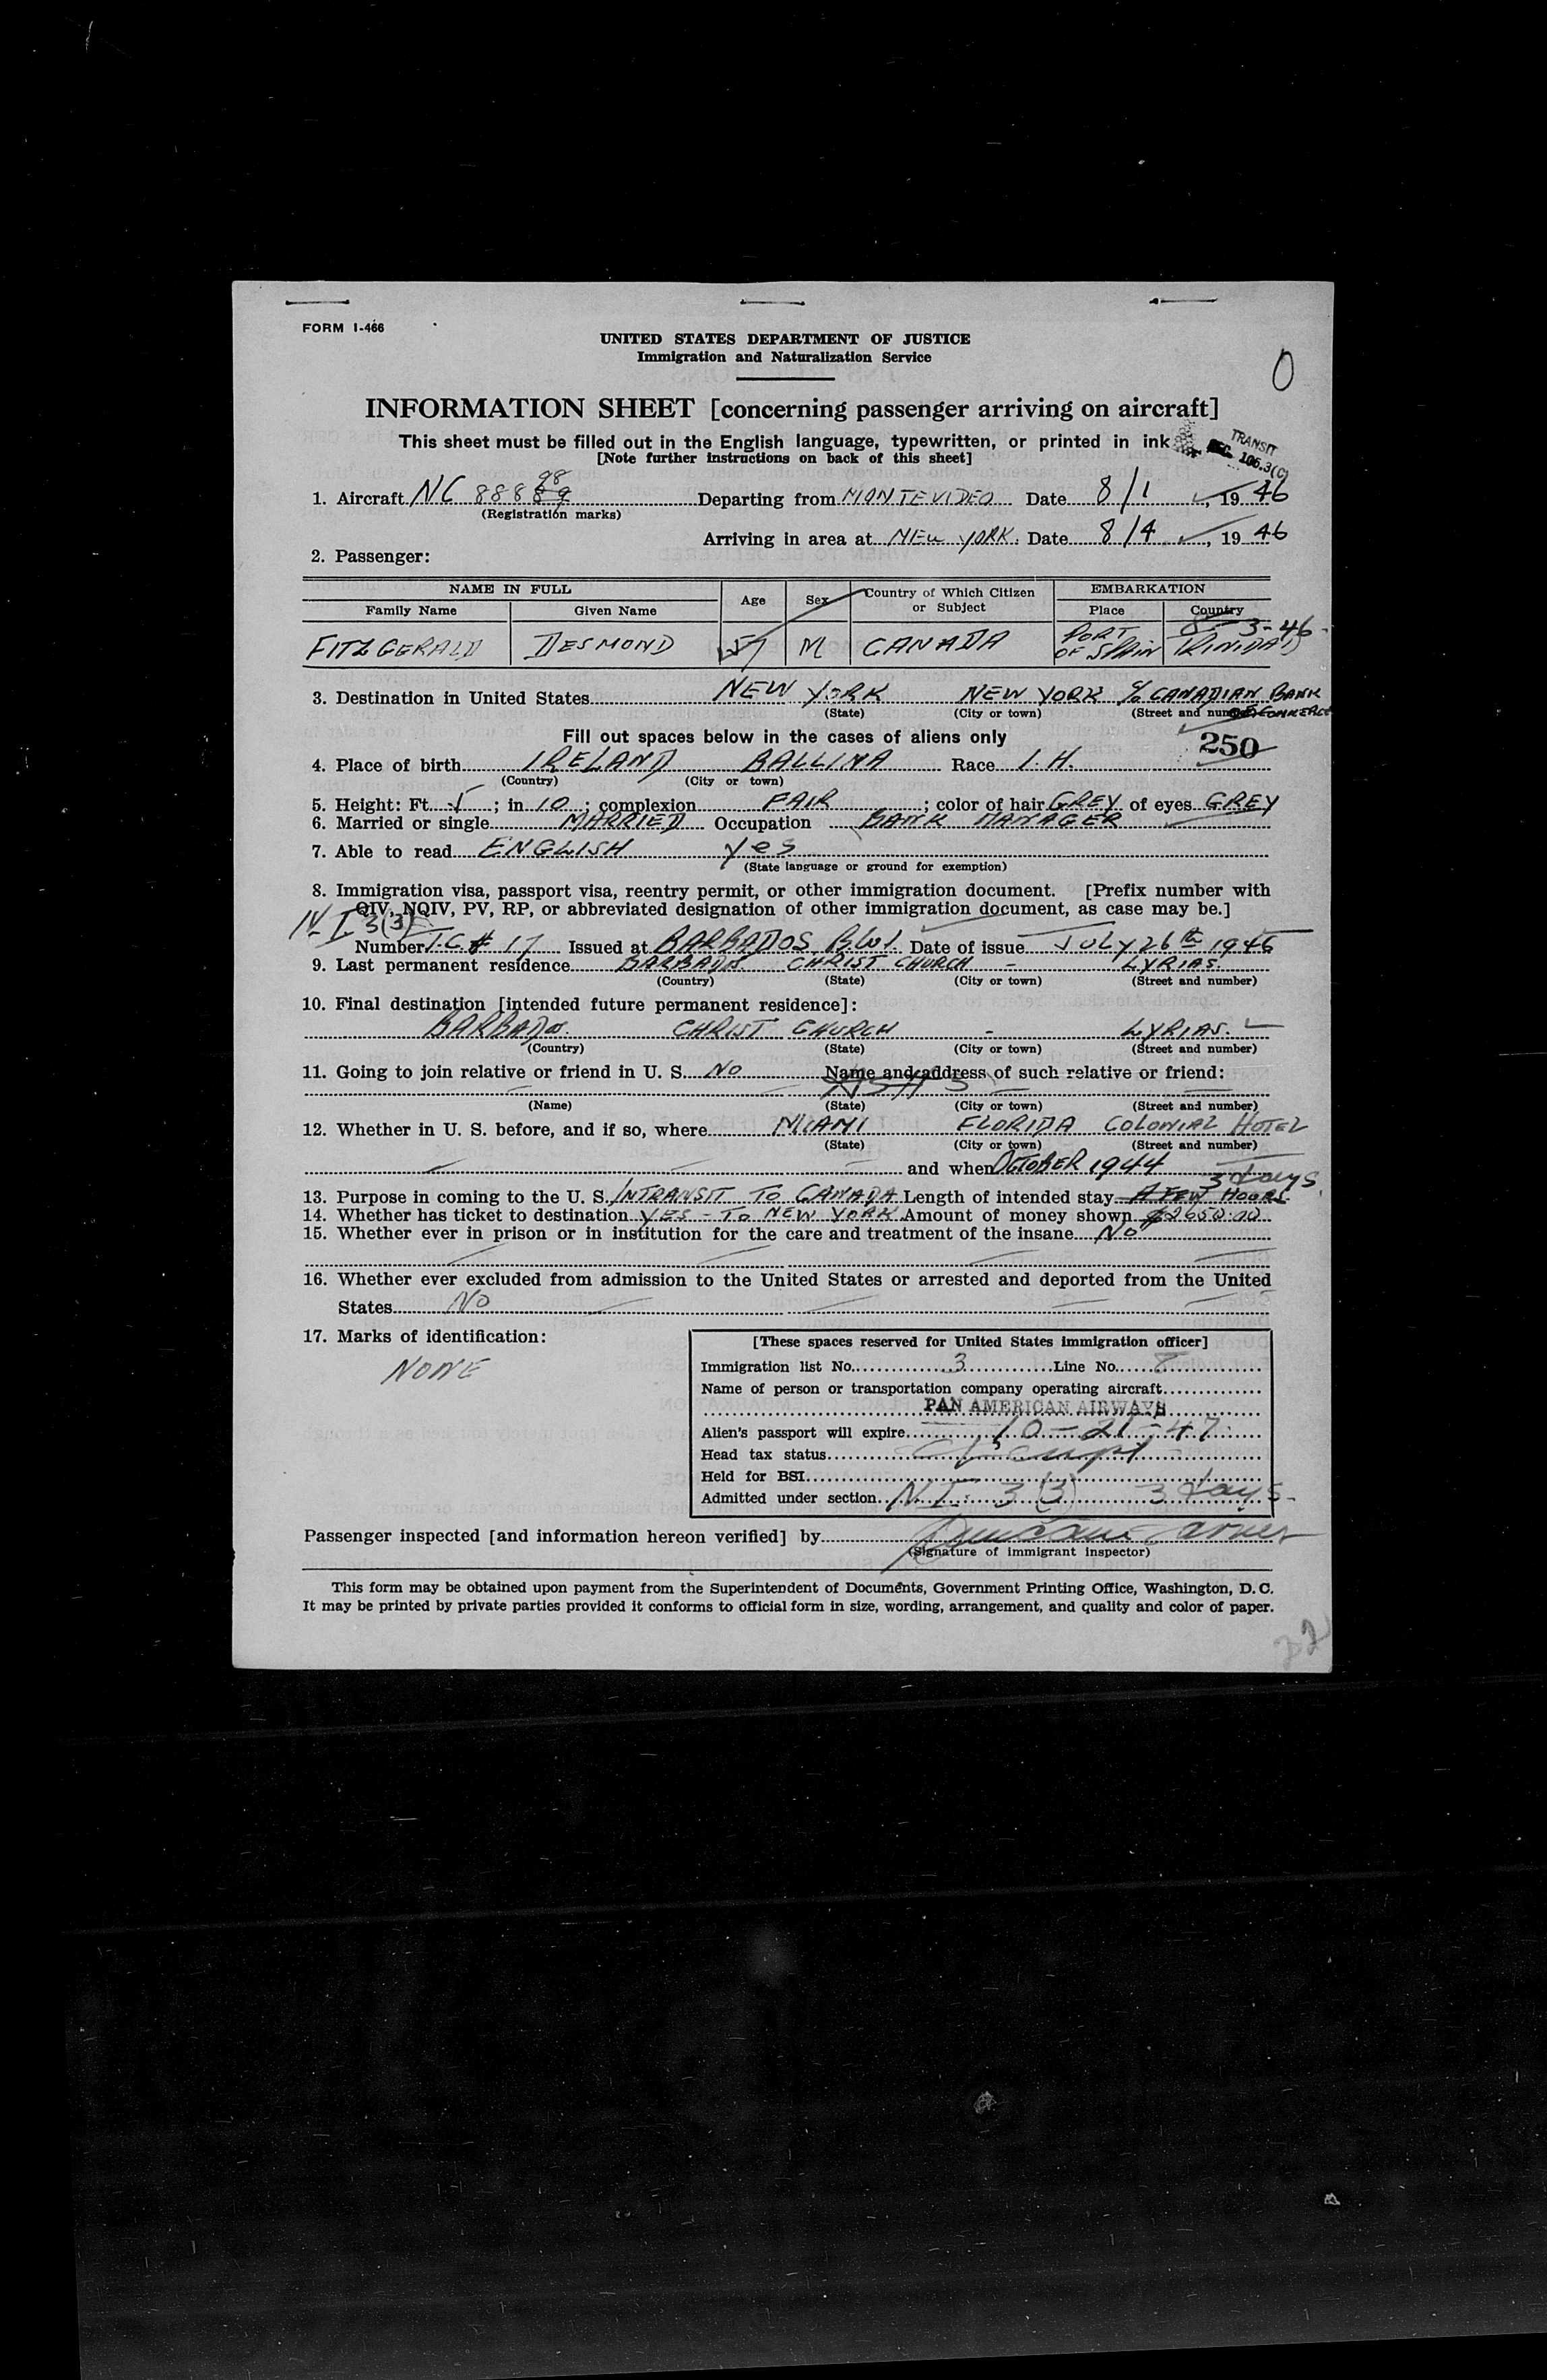 FORM I-466
UNITED STATES DEPARTMENT OF JUSTICE
Immigration and Naturalization Service
0
INFORMATION SHEET [concerning passenger arriving on aircraft]
This sheet must be filled out in the English language, typewritten, or printed in ink
[Note further instructions on back of this sheet]
TRANSIT
SEC. 106.3(C)
98
1. Aircraft NC 88889 Departing from MONTEVIDEO Date 8/1, 19 46
(Registration marks)
Arriving in area at NEW YORK Date 8/4, 19 46
2. Passenger:
NAME IN FULL Age Sex Country of Which Citizen or Subject EMBARKATION
Family Name Given Name Place Country
8-3-46
FITZGERALD DESMOND 57 M CANADA PORT OF SPAIN TRINIDAD
3. Destination in United States NEW YORK NEW YORK c/o CANADIAN BANK OF COMMERCE
(State) (City or town) (Street and number)
Fill out spaces below in the cases of aliens only
250
4. Place of birth IRELAND BALLINA Race I.H.
(Country) (City or town)
5. Height: Ft. 5; in 10; complexion FAIR; color of hair GREY of eyes GREY
6. Married or single MARRIED Occupation BANK MANAGER
7. Able to read ENGLISH yes
(State language or ground for exemption)
8. Immigration visa, passport visa, reentry permit, or other immigration document. [Prefix number with
QIV, NQIV, PV, RP, or abbreviated designation of other immigration document, as case may be.]
3(3)
Number T.C. # 17 Issued at BARBADOS, B.W.I. Date of issue JULY 26th 1946
9. Last permanent residence BARBADOS CHRIST CHURCH - LYRIAS.
(Country) (State) (City or town) (Street and number)
10. Final destination [intended future permanent residence]:
BARBADOS. CHRIST CHURCH - LYRIAS.
(Country) (State) (City or town) (Street and number)
11. Going to join relative or friend in U. S. NO Name and address of such relative or friend:
(Name) (State) (City or town) (Street and number)
12. Whether in U. S. before, and if so, where MIAMI FLORIDA COLONIAL HOTEL
(State) (City or town) (Street and number)
and when OCTOBER 1944
3 days
13. Purpose in coming to the U. S. INTRANSIT TO CANADA Length of intended stay A FEW HOURS
14. Whether has ticket to destination YES - TO NEW YORK Amount of money shown $2650.00
15. Whether ever in prison or in institution for the care and treatment of the insane NO
16. Whether ever excluded from admission to the United States or arrested and deported from the United
States NO
17. Marks of identification:
NONE
[These spaces reserved for United States immigration officer]
Immigration list No. 3 Line No. 8
Name of person or transportation company operating aircraft
PAN AMERICAN AIRWAYS
Alien's passport will expire 10-21-47
Head tax status
Held for BSI
Admitted under section N.I. 3(3) 3 days-
Passenger inspected [and information hereon verified] by
(Signature of immigrant inspector)
This form may be obtained upon payment from the Superintendent of Documents, Government Printing Office, Washington, D. C.
It may be printed by private parties provided it conforms to official form in size, wording, arrangement, and quality and color of paper.